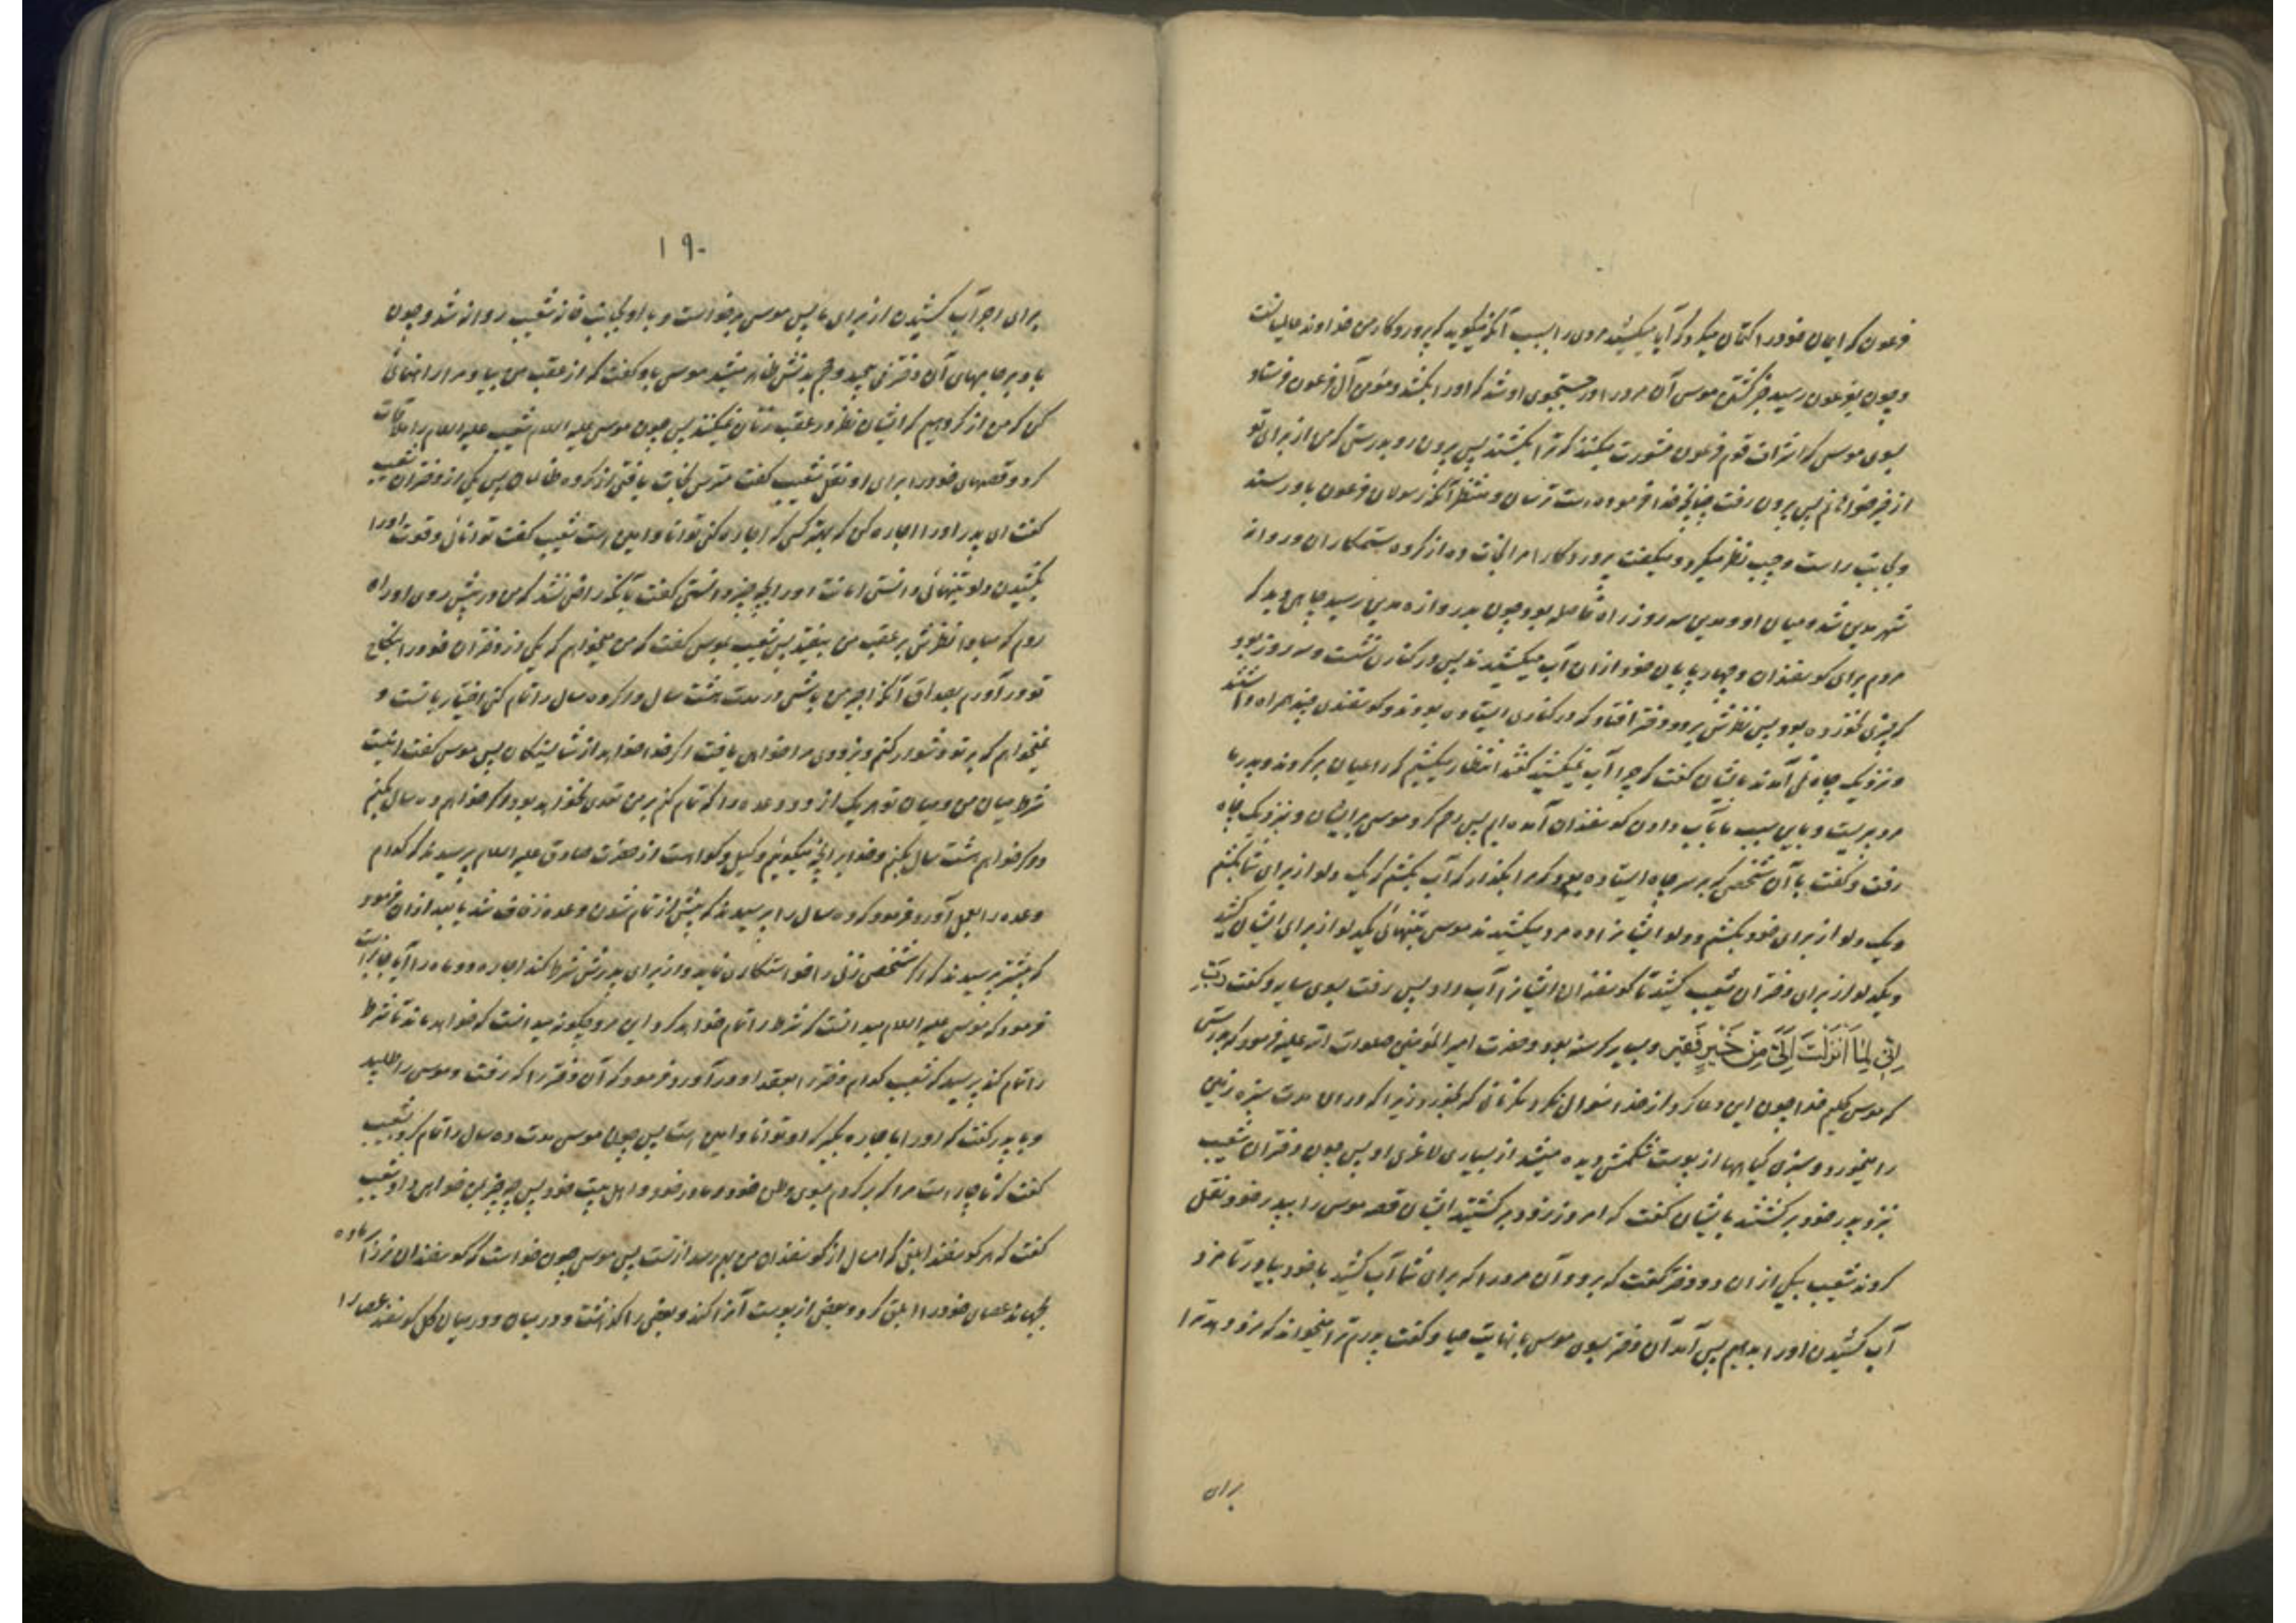 فرعون که ایمان خود را کتمان میکرد که آیا میکشید مردی را بسبب آنکه میگوید که پروردگار من خداوند عالمیانست
و چون بفرعون رسید خبر کشتن موسی آن مرد را در جستجوی او شد که او را بکشد و مؤمن آل فرعون فرستاد
بسوی موسی که اشراف قوم فرعون مشورت میکنند که ترا بکشند پس بیرون رو بدرستی که من از برای تو
از خیرخواهانم پس بیرون رفت چنانچه خدا فرموده است ترسان و منتظر آنکه رسولان فرعون باو رسند
و بجانب راست و چپ نظر میکرد و میگفت پروردگارا مرا نجات ده از گروه ستمکاران و روانه
شهر مدین شد و میان او و مدین سه روز راه فاصله بود چون بدروازه مدین رسید چاهی دید که
مردم برای گوسفندان و چهارپایان خود از ان آب میکشیدند پس در کناری نشست و سه روز بود
که چیزی نخورده بود پس نظرش بر دو دختر افتاد که در کناری ایستاده بودند و گوسفندی چند همراه داشتند
و نزدیک چاه نمی آمدند بایشان گفت که چرا آب نمیکشید گفتند انتظار میکشیم که راعیان برگردند و پدر ما
مرد پیریست و باین سبب ما بآب دادن گوسفندان آمده ایم پس رحم کرد موسی بر ایشان و بنزدیک چاه
رفت و گفت با آن شخصی که بر سر چاه ایستاده بود که مرا بگذار که آب بکشم که یک دلو از برای شما بکشم
و یک دلو از برای خود بکشم و دلو ایشانرا ده مرد میکشیدند موسی بتنهائی یکدلو از برای ایشان کشید
و یکدلو از برای دختران شعیب کشید تا گوسفندان ایشانرا آب داد پس رفت بسوی سایه و گفت رَبِّ
اِنّی لِمٰا اَنْزَلْتَ اِلَیَّ مِنْ خَیْرٍ فَقیر و بسیار گرسنه بود و حضرت امیر المؤمنین صلوات الله علیه فرمود که بدرستی
که موسی کلیم خدا چون این دعا کرد از خدا سؤال نکرد مگر نانی که بخورد زیرا که در ان مدت سبزه زمین
را میخورد و سبزی گیاهها از پوست شکمش دیده میشد از بسیاری لاغری او پس چون دختران شعیب
بنزد پدر خود برگشتند بایشان گفت که امروز زود برگشتید ایشان قصه موسی را بپدر خود نقل
کردند شعیب بیکی از ان دو دختر گفت که برو و آن مرد را که برای شما آب کشید با خود بیاور تا مزد
آب کشیدن او را بدهیم پس آمد آن دختر بسوی موسی با نهایت حیا و گفت پدرم ترا میخواند که مزد دهد ترا
برای
۱۹۰
برای اجر آب کشیدن از برای ما پس موسی برخواست و با او بجانب خانه شعیب روانه شد و چون
باد بر جامهای آن دختر می پیچید و حجم بدنش ظاهر میشد موسی باو گفت که از عقب من بیا و مرا راهنمائی
کن که من از گروهیم که ایشان نظر در عقب زنان نمیکنند پس چون موسی علیه السلام شعیب علیه السلام را ملاقات
کرد و قصهای خود را برای او نقل شعیب گفت مترس نجات یافتی از گروه ظالمان پس یکی از دختران شعیب
گفت ای پدر او را اجاره کن که بهتر کسی که اجاره کنی توانا و امین است شعیب گفت توانائی و قوت او را
بکشیدن دلو بتنهائی دانستی امانت او را بچه چیز دانستی گفت بآنکه راضی نشد که من در پیش روی او راه
روم که مبادا نظرش بر عقب من بیفتد پس شعیب بموسی گفت که من میخواهم که یکی از دختران خود را بنکاح
تو در آورم بصداق آنکه اجیر من باشی در مدت هشت سال و اگر ده سال را تمام کنی اختیار با تست و
نمیخواهم که بر تو دشوار کنم و بزودی مرا خواهی یافت اگر خدا خواهد از شایستگان پس موسی گفت اینست
شرط میان من و میان تو هر یک از دو وعده را که تمام کنم بر من تعدی نخواهد بود اگر خواهم ده سال بکنم
و اگر خواهم هشت سال بکنم و خدا بر آنچه میگوئیم وکیل و گواه است از حضرت صادق علیه السلام پرسیدند که کدام
وعده را بعمل آورد فرمود که ده سال را پرسیدند که پیش از تمام شدن وعده زفاف شد یا بعد از ان فرمود
که پیشتر پرسیدند که اگر شخصی زنی را خواستگاری نماید و از برای پدرش شرط کند اجاره دو ماه را آیا جایز است
فرمود که موسی علیه السلام میدانست که شرط را تمام خواهد کرد این مرد چگونه میدانست که خواهد ماند تا شرط
را تمام کند پرسید که شعیب کدام دختر را بعقد او در آورد فرمود که آن دختر را که رفت و موسی را طلبید
و با پدر گفت که او را باجاره بگیر که او توانا و امین است پس چون موسی مدت ده سال را تمام کرد بشعیب
گفت که ناچار است مرا که برگردم بسوی وطن خود و مادر خود و اهل بیت خود پس چه چیز بمن خواهی داد شعیب
گفت که هر گوسفند ابلقی که امسال از گوسفندان من بهم رسد از تست پس موسی چون خواست که گوسفندان نر را بر ماده
بجهاند عصای خود را ابلق کرد و بعضی از پوست آنرا کند و بعضی را گذاشت و در میان گله گوسفند عصا را